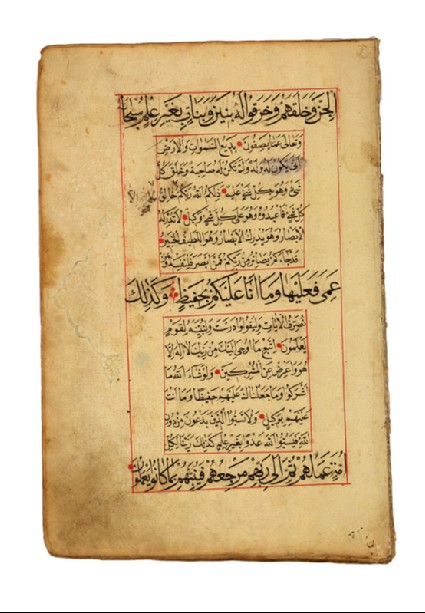 الجن وخلقهم وخرقوا له بنين وبنات بغير علم سبحانه
وتعالى عما يصفون بديع السموات والارض
انى يكون له ولد ولم تكن له صاحبة وخلق كل
شيء وهو بكل شيء عليم ذلكم الله ربكم خالق
كل شيء فاعبدوه وهو على كل شيء وكيل لا تدركه
الابصار وهو يدرك الابصار وهو اللطيف الخبير
قد جاءكم بصائر من ربكم فمن ابصر فلنفسه ومن
عمى فعليها وما انا عليكم بحفيظ وكذلك
نصرف الايات وليقولوا درست ولنبينه لقوم
يعلمون اتبع ما اوحى اليك من ربك لا اله الا
هو واعرض عن المشركين ولو شاء الله ما
اشركوا وما جعلناك عليهم حفيظا وما انت
عليهم بوكيل ولا تسبوا الذين يدعون من دون
الله فيسبوا الله عدوا بغير علم كذلك زينا لكل
امة عملهم ثم الى ربهم مرجعهم فينبئهم بما كانوا يعملون